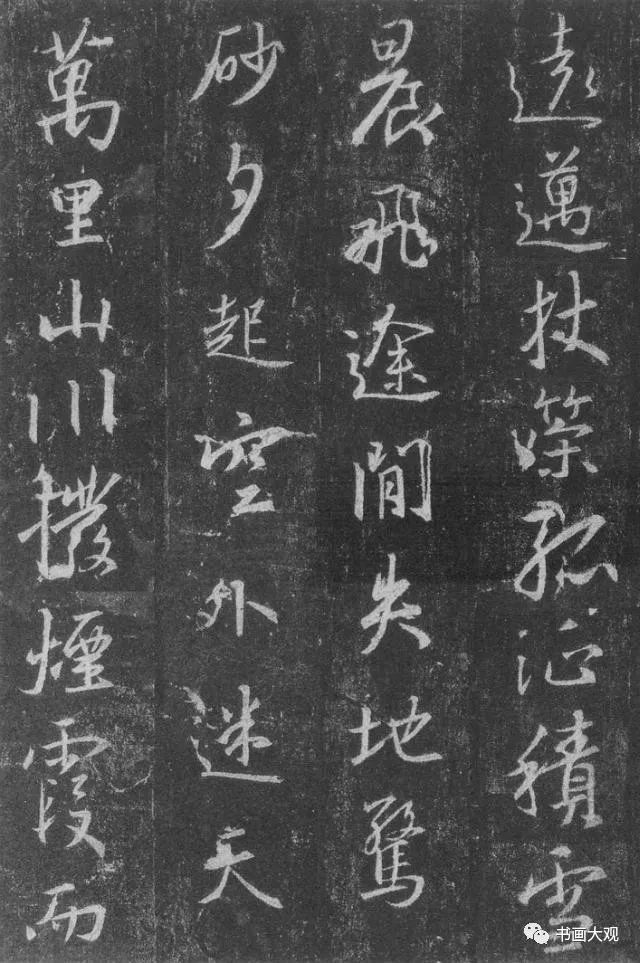 遠邁杖策孤征積雪
晨飛途間失地驚
砂夕起空外迷天
萬里山川撥煙霞而
书画大观